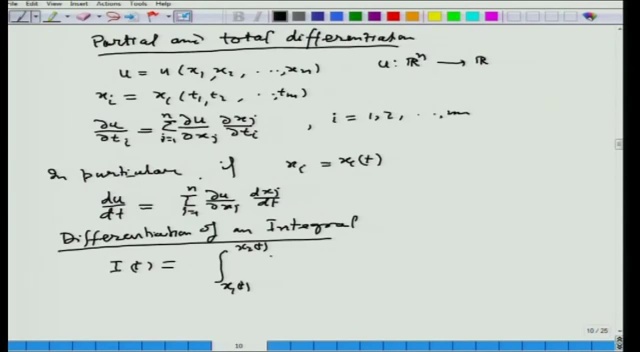 File Edit View Insert Actions Tools Help
Partial and total differentiation
u = u(x₁, x₂, ..., xₙ)    u: ℝⁿ → ℝ
xᵢ = xᵢ(t₁, t₂, ..., tₘ)
∂u/∂tᵢ = Σⁿⱼ₌₁ ∂u/∂xⱼ ∂xⱼ/∂tᵢ , i = 1, 2, ..., m
In particular, if xᵢ = xᵢ(t)
du/dt = Σⁿⱼ₌₁ ∂u/∂xⱼ dxⱼ/dt
Differentiation of an Integral
I(t) = ∫_{x₁(t)}^{x₂(t)}
10 / 25
10